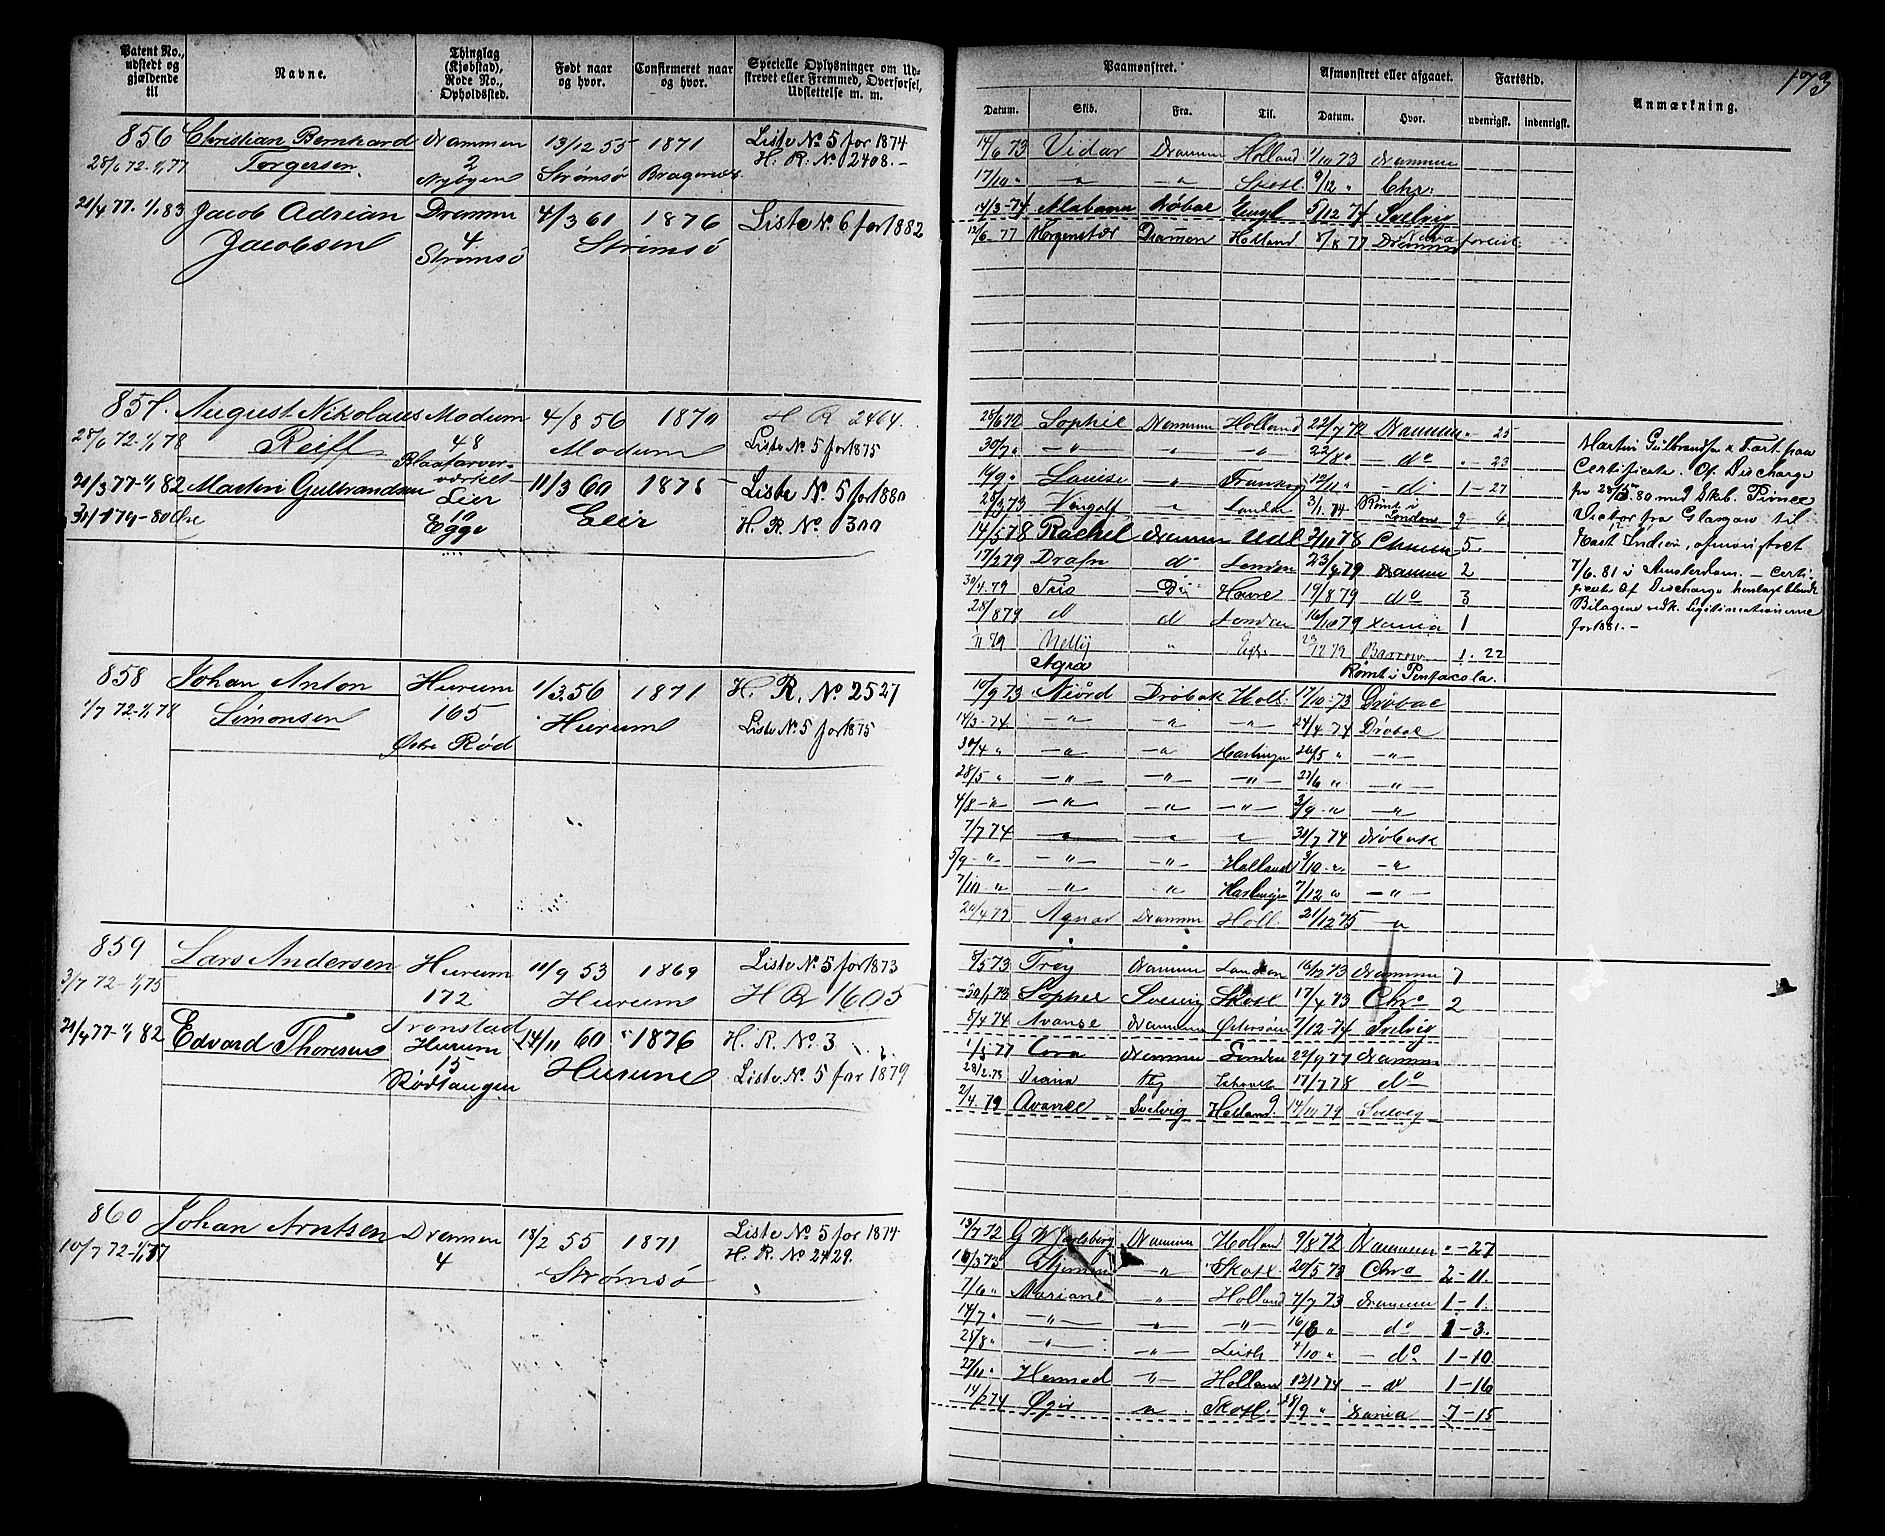 Patent No., udstedt og gjældende til
Navne.
Thinglag (Kjøbstad), Rode No., Opholdssted.
Født naar og hvor.
Confirmeret naar og hvor.
Specielle Oplysninger om Udskrevet eller Fremmed, Overførsel, Udslettelse m. m.
856 Christian Bernhard Drammen 13/12 55 1871 Liste No 5 for 1874
28/6 72-1/1 77 Torgersen 2 Nybyen Strømsø Bragernes H. R. No 2408.-
21/4 77. 1/1 83 Jacob Adrian Dramme 4/3 61 1876 Liste No. 6 for 1882
Jacobsen 4 Strømsø Strømsø
857. August Nikolaus Modum 4/8 56 1870 H R 2464.
28/6 72-1/1 78 Reiff 48 Modum Liste No. 5 for 1875
Blaafarveværket
21/3 77-1/1 82 Martin Gulbrandsen Lier 11/3 60 1875 Liste No. 5 for 1880
10 Egge Leir H. R. No. 300
858 Johan Anton Hurum 1/3 56 1871 H. R. No 2527
1/7 72-1/1 78 Simonsen 165 Hurum Liste No. 5 for 1875
Østre Rød
859 Lars Andersen Hurum 11/9 53 1869 Liste No. 5 for 1873
3/7 72-1/1 75 172 Hurum H R 1605
Tronstad
21/4 77-1/1 82 Edvard Thoresen Hurum 24/11 60 1876 H. R. No. 3
15 Hurum Liste No. 5 for 1879
Rødtangen
860 Johan Arntsen Drammen 18/2 55 1871 Liste No. 5 for 1874
10/7 72-1/1 77 4 Strømsø H. R. No. 2429.
173
Paamønstret.
Afmønstret eller afgaaet.
Fartstid.
Anmærkning.
Datum. Skib. Fra. Til. Datum. Hvor. udenrigsk. indenrigsk.
14/6 73 Vidar Drammen Holland 1/10 73 Drammen
17/10 " " " Skotl. 9/12 " Chr:
14/3-74 Alabama Drøbak Engl 5/12 74 Svelvig
12/6-77 Morgenstær Drammen Holland 8/8 77 Drammen
28/6 72 Sophie Drammen Holland 22/7 72 Drammen "- 25
30/7 " " " " 22/8 " do " 23
Louise " 12/11 " d 1-27
Vingolf " London 3/1 74 Rømt i London 9 6
14/5 78 Rachel Drammen Udl 2/11 78 5.
17/2 79 Drafn d London 23/4 79 Drammen 2
30/4 79 Havre 19/8 79 do 3
28/8 79 d d London 16/10 79 Xania 1
Nelly " 1. 22
Agra Rømt i Pensacola.
Martin Gulbrandsen Fart paa
Certificate Of Discharge
med Skb. Prince
Victor fra Glasgow til
Ost Indien, afmønstret
7/6. 81 i Amsterdam. - Certificate
Of Discharge henlagt blandt
Bilagene vedk. Legitimationerne
for 1881. -
10/9 73 Niörd Drøbak Holl. 17/10. 73 Drøbak
14/3-74 -"- -"- -"- 24/4 74 Drøbak
30/4 " -"- -"- 26/5 " -"-
28/5 " -"- -"- -"- 23/6 " -"-
4/8-" -"- -"- -"- 3/9-" -"-
7/7 74 " " " 30/7 74 Drøbak
5/9-" -"- -"- Holland 3/10-" -"-
7/10 " " " 7/12 " -"-
Agnar Drammen Holl. 21/12 75 "
Frey Drammen London Drammen 7
Sopher Svelvig Skotl 17/4 73 Chra 2
8/4 74 Avance Drammen Østersøen 7/12-74 Svelvig
1/5 77 Cora Drammen London 22/9 77 Drammen
28/2.78 Diana 17/7 78 do
2/4. 79 Avance Svelvig Holland 14/10 79 Svelvig
13/7 72 G W Jarlsberg Drammen Holland 9/8 72 Drammen "-27
10/3 73 " Skotl 20/5 73 Chra 2-11.
7/6 " Mariane " Holland 7/7 73 Drammen 1-1.
14/7 " -"- " -"- 16/8 " do 1-3.
25/8 " -"- " Leith 4/10 " - do 1-10
27/11 " Hemsed " Holland 12/1 74 - d 1-16
14/2 74 Øgir " Skotl. 28/9 " Xania 7-15